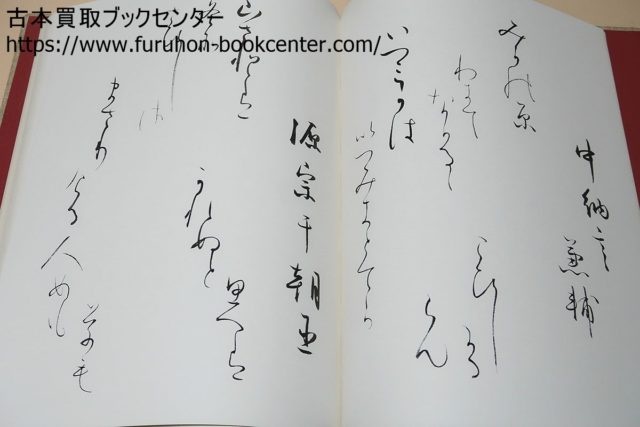 古本買取ブックセンター
https://www.furuhon-bookcenter.com/
中納言兼輔
みかの原
わきて
なかるゝ
いつみきとてか
こひしかる
らん
源宗于朝臣
山さとは
まさり
ける人めも
草も
かれぬと
思へは